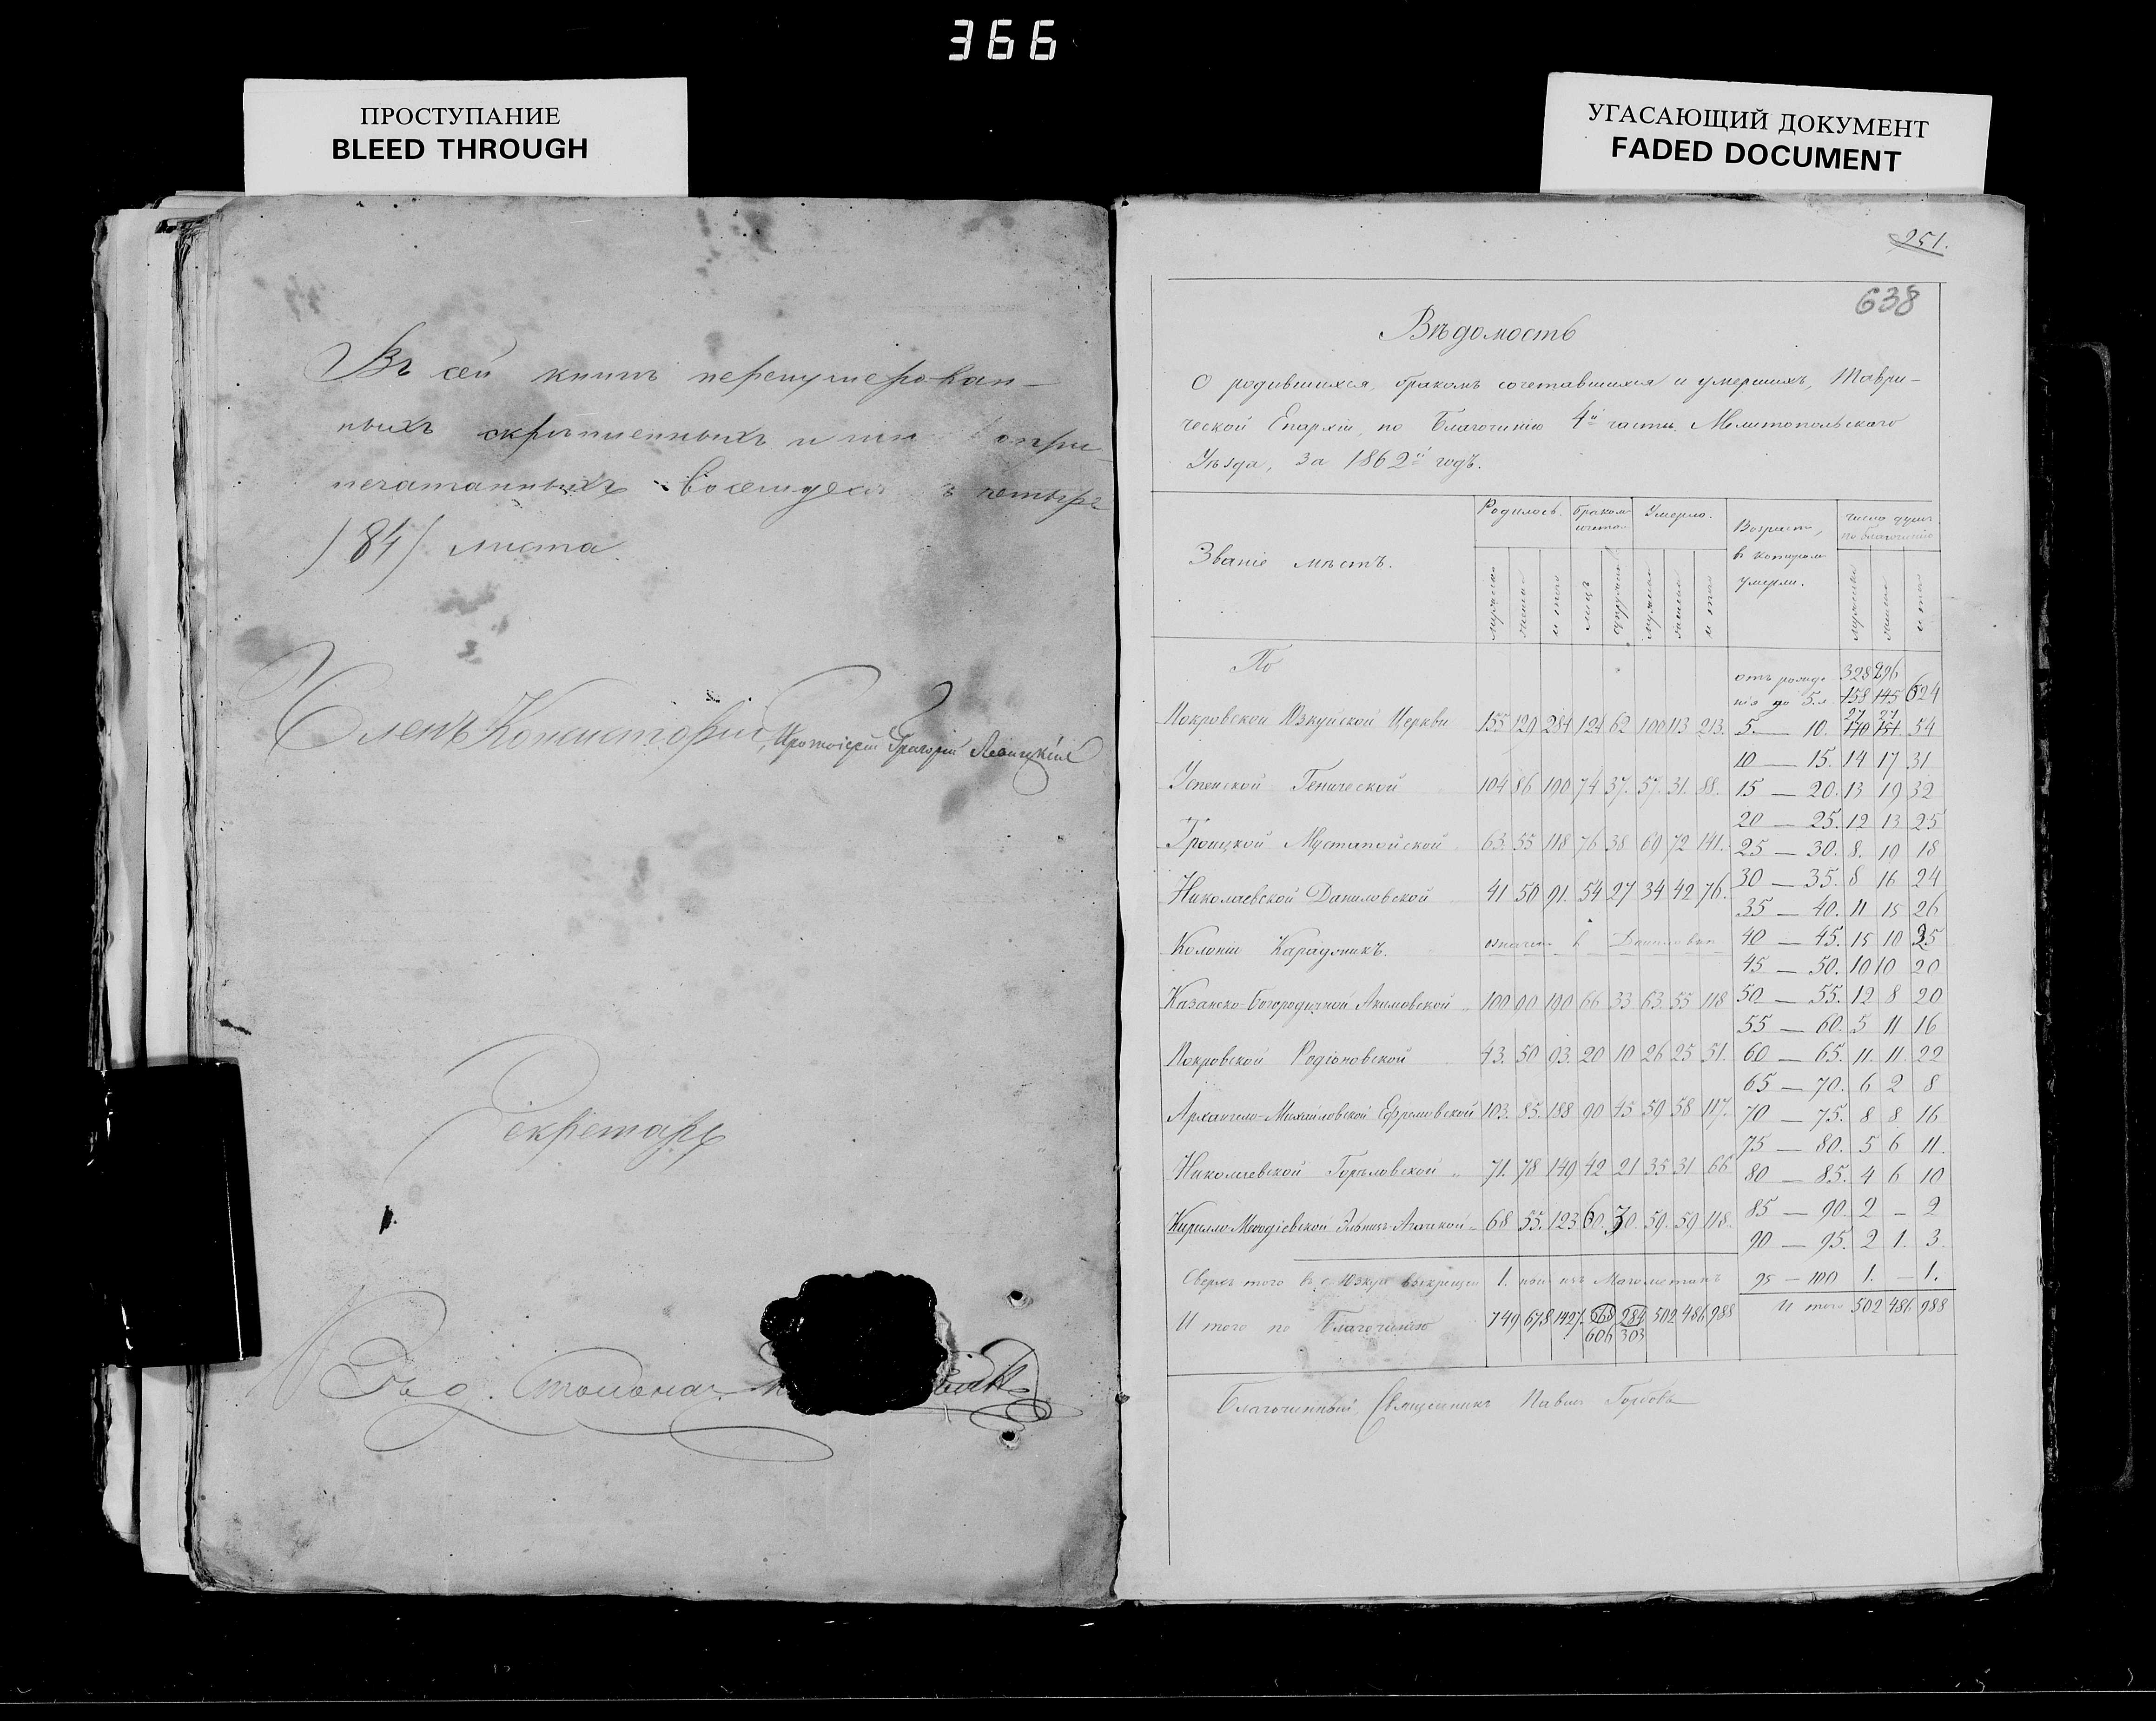 366
ПРОСТУПАНИЕ
BLEED THROUGH
УГАСАЮЩИЙ ДОКУМЕНТ
FADED DOCUMENT
Въ сей книгѣ перенумерован-
ныхъ скрѣпленныхъ и
печатанныхъ восемдеся четыре
/84/ листа
Членъ Консисторіи, Протоіерей Григорій
Секретарь
251.
638
Вѣдомость
О родившихся, бракомъ сочетавшихся и умершихъ, Таври-
ческой Епархіи, по Благочинію 4й части Мелитопольскаго
Уѣзда, за 1862й годъ.
Званіе мѣстъ. Родилось. Браком Умерло. Возрастъ, в котором умерли. число душъ по благочинію
мужеска женска итого лицъ супружествъ мужеска женска итого мужеска женска итого
По отъ рожде 328 296
нія до 5.л. 158 145 624
Покровской Юзкуйской Церкви 155 129 284 124 62 100 113 213. 5. — 10. 27 27 170 151 54
10 — 15. 14 17 31
Успенской Генической 104 86 190 74 37. 57. 31. 88. 15 — 20. 13 19 32
20 — 25. 12 13 25
Троицкой Мустапойской 63. 55 118 76 38 69 72 141. 25 — 30. 8. 10 18
30 — 35. 8 16 24
Николаевской Даниловской 41 50 91. 54 27 34 42 76. 35 — 40. 11 15 26
Колоніи Карадзникъ. означен в Даниловкѣ 40 — 45. 15 10 25
45 — 50. 10 10 20
Казанско-Богородичной Акимовской 100 90 190 66 33 63. 55 118 50 — 55. 12 8 20
55 — 60. 5 11 16
Покровской Родіоновской 43. 50 93. 20 10 26 25 51. 60 — 65. 11. 11. 22
65 — 70. 6 2 8
Архангело-Михайловской Ефремовской 103. 85. 188 90 45 59 58 117. 70 — 75. 8 8 16
75 — 80. 5 6 11.
Николаевской Горѣловской 71. 78 149 42 21 35 31 66 80 — 85. 4 6 10
Кирилло-Меѳодіевской 68 55. 123 60. 30. 59. 59 118. 85 — 90. 2 — 2
90 — 95. 2 1. 3
Сверхъ того въ с. Юзкуе 1. изъ Магометанъ 95 — 100 1. — 1.
Итого по Благочинію 749 678 1427. 568 284 502 486 988 Итого 502 486 988
606 303
Благочинный Священникъ Павелъ